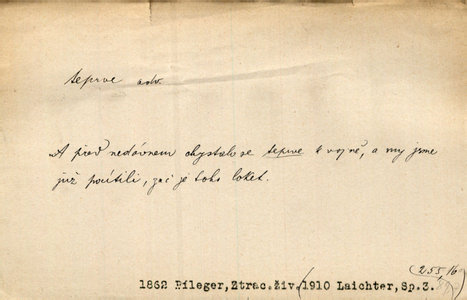 teprve adv.
A před nedávnem chystalo se teprve k vojně, a my jsme
již pocítili, zač je toho loket.
(255, 16)
1862 Pfleger, Ztrac.živ.(1910 Laichter, Sp.3.